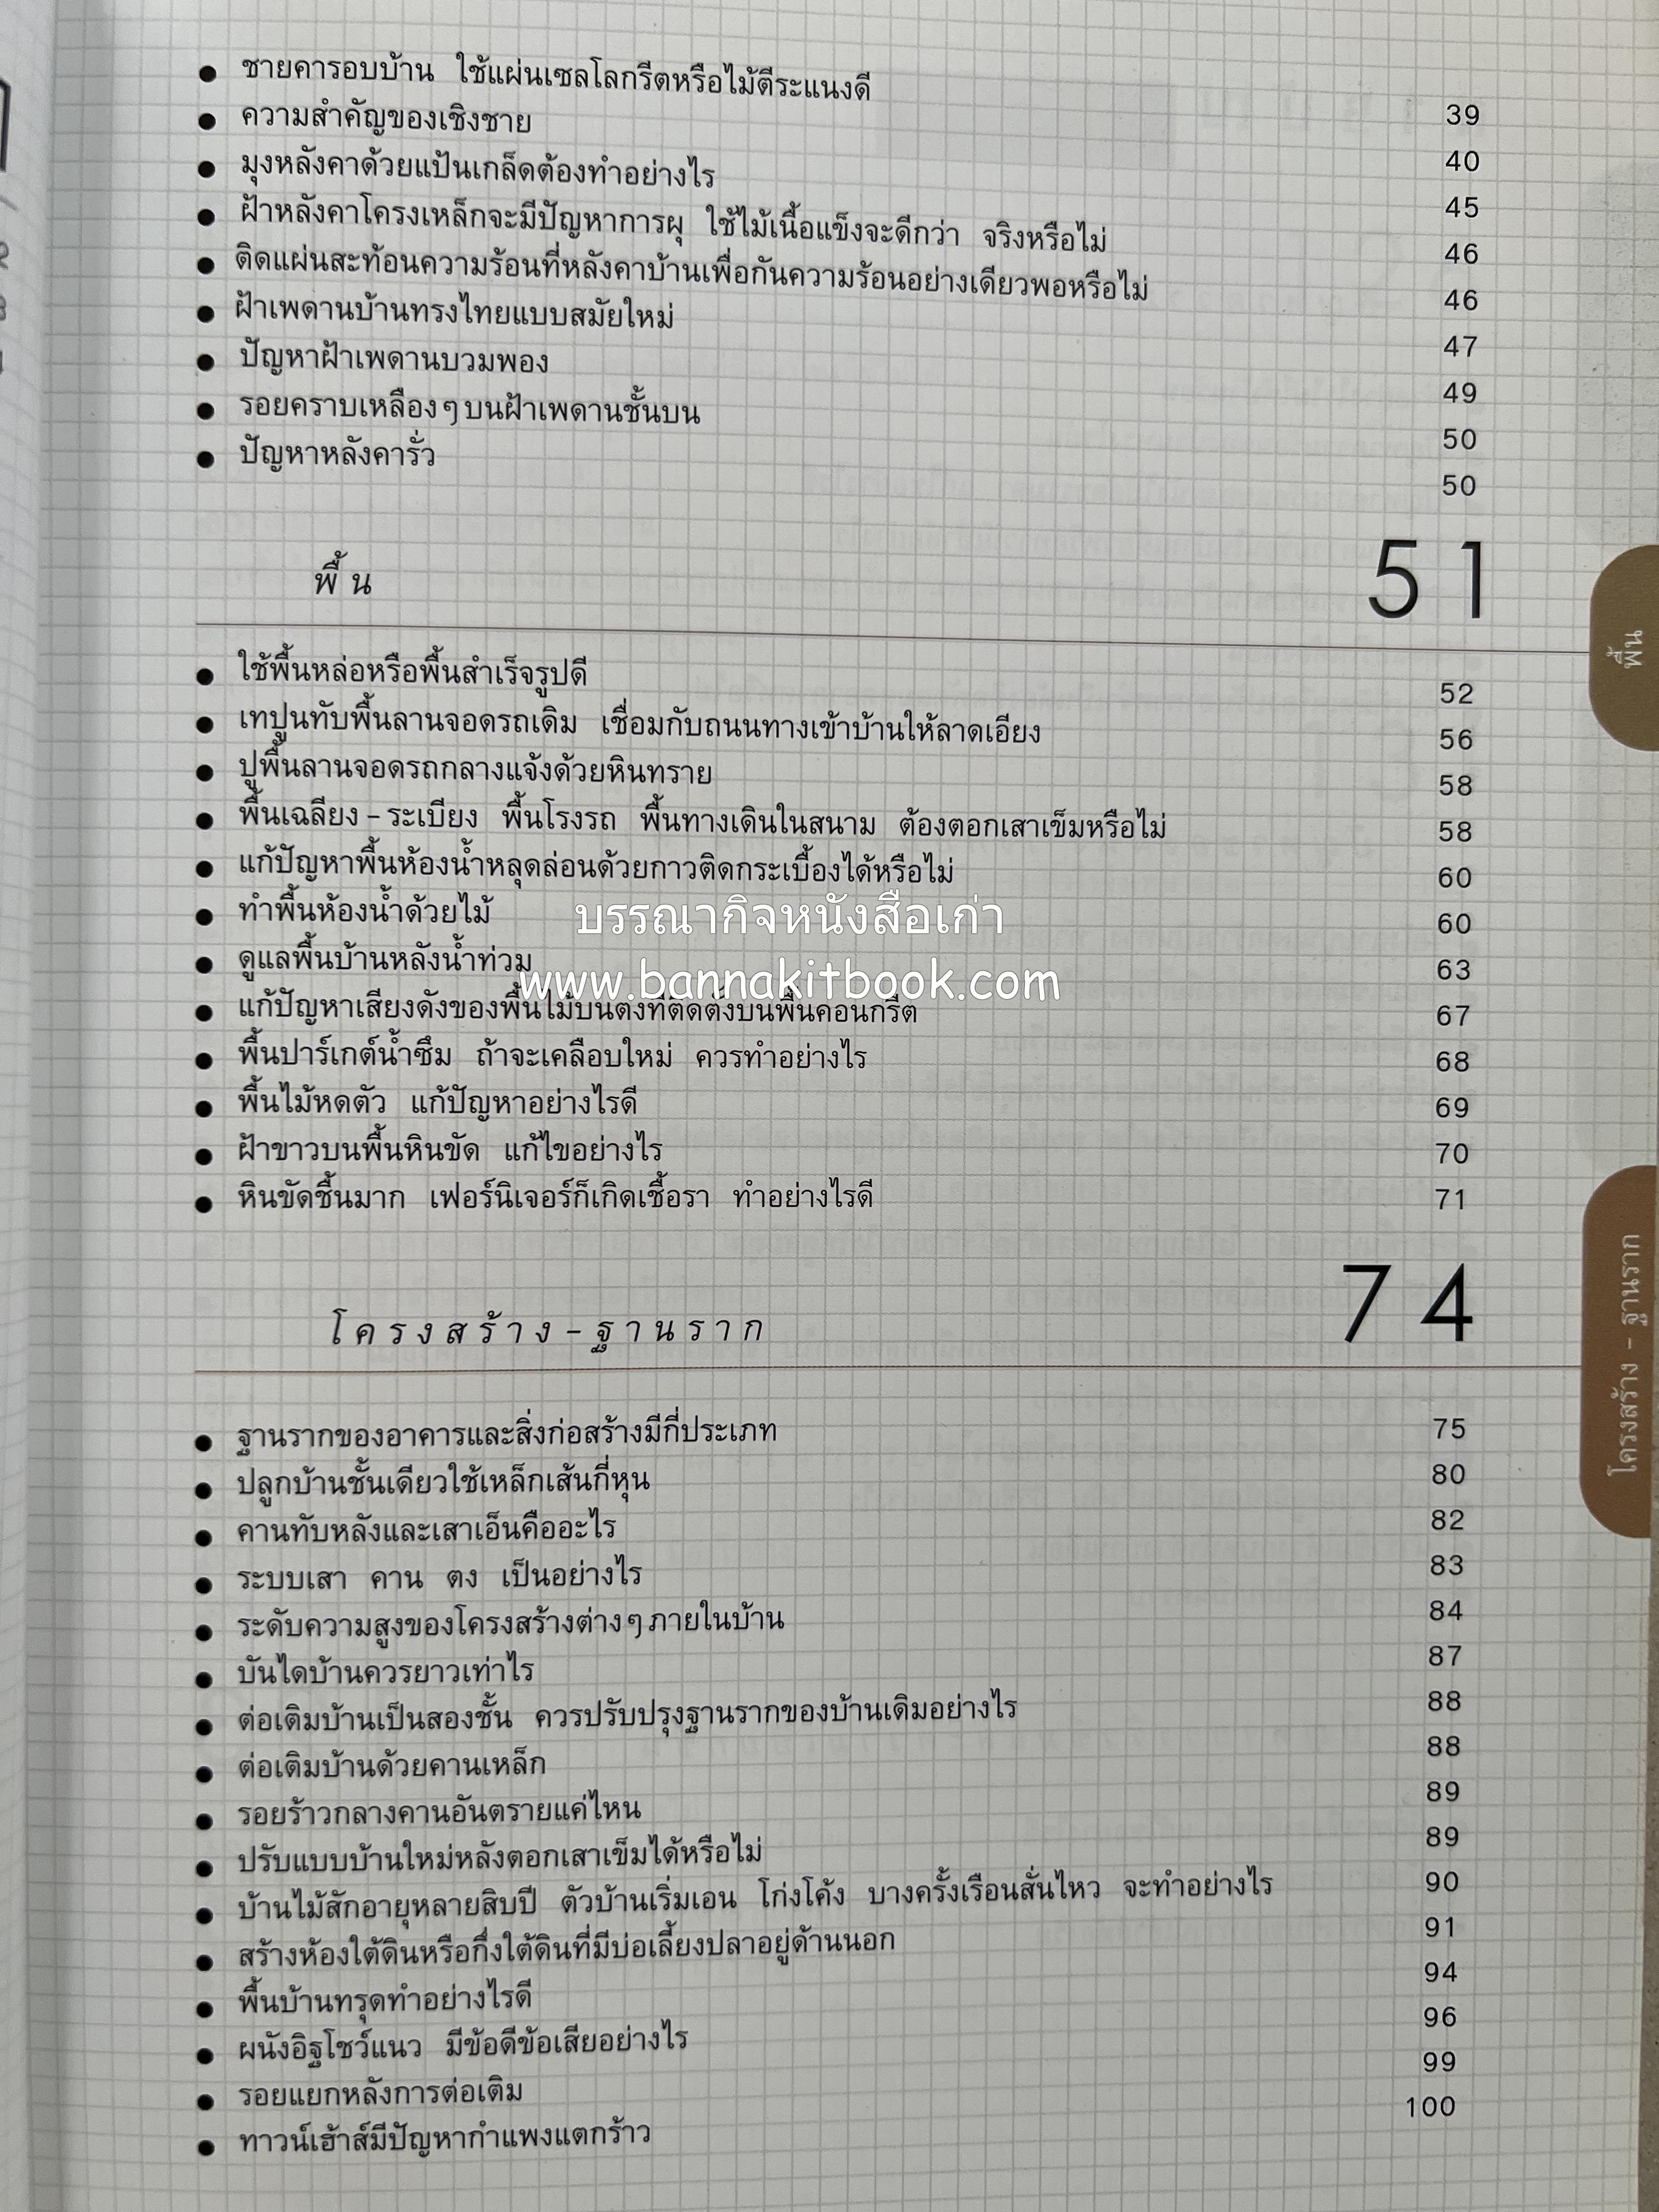 ● ชายคารอบบ้าน ใช้แผ่นเซลโลกรีตหรือไม้ตีระแนงดี 39
● ความสำคัญของเชิงชาย 40
● มุงหลังคาด้วยแป้นเกล็ดต้องทำอย่างไร 45
● ฝ้าหลังคาโครงเหล็กจะมีปัญหาการผุ ใช้ไม้เนื้อแข็งจะดีกว่า จริงหรือไม่ 46
● ติดแผ่นสะท้อนความร้อนที่หลังคาบ้านเพื่อกันความร้อนอย่างเดียวพอหรือไม่ 46
● ฝ้าเพดานบ้านทรงไทยแบบสมัยใหม่ 47
● ปัญหาฝ้าเพดานบวมพอง 49
● รอยคราบเหลืองๆบนฝ้าเพดานชั้นบน 50
● ปัญหาหลังคารั่ว 50
พื้น 51
พื้น
● ใช้พื้นหล่อหรือพื้นสำเร็จรูปดี 52
● เทปูนทับพื้นลานจอดรถเดิม เชื่อมกับถนนทางเข้าบ้านให้ลาดเอียง 56
● ปูพื้นลานจอดรถกลางแจ้งด้วยหินทราย 58
● พื้นเฉลียง - ระเบียง พื้นโรงรถ พื้นทางเดินในสนาม ต้องตอกเสาเข็มหรือไม่ 58
● แก้ปัญหาพื้นห้องน้ำหลุดล่อนด้วยกาวติดกระเบื้องได้หรือไม่ 60
● ทำพื้นห้องน้ำด้วยไม้ 60
บรรณากิจหนังสือเก่า
● ดูแลพื้นบ้านหลังน้ำท่วม 63
www.bannakitbook.com
● แก้ปัญหาเสียงดังของพื้นไม้บนตงที่ติดตั้งบนพื้นคอนกรีต 67
● พื้นปาร์เกต์น้ำซึม ถ้าจะเคลือบใหม่ ควรทำอย่างไร 68
● พื้นไม้หดตัว แก้ปัญหาอย่างไรดี 69
● ฝ้าขาวบนพื้นหินขัด แก้ไขอย่างไร 70
● หินขัดชื้นมาก เฟอร์นิเจอร์ก็เกิดเชื้อรา ทำอย่างไรดี 71
โครงสร้าง-ฐานราก 74
โครงสร้าง - ฐานราก
● ฐานรากของอาคารและสิ่งก่อสร้างมีกี่ประเภท 75
● ปลูกบ้านชั้นเดียวใช้เหล็กเส้นกี่หุน 80
● คานทับหลังและเสาเอ็นคืออะไร 82
● ระบบเสา คาน ตง เป็นอย่างไร 83
● ระดับความสูงของโครงสร้างต่างๆภายในบ้าน 84
● บันไดบ้านควรยาวเท่าไร 87
● ต่อเติมบ้านเป็นสองชั้น ควรปรับปรุงฐานรากของบ้านเดิมอย่างไร 88
● ต่อเติมบ้านด้วยคานเหล็ก 88
● รอยร้าวกลางคานอันตรายแค่ไหน 89
● ปรับแบบบ้านใหม่หลังตอกเสาเข็มได้หรือไม่ 89
● บ้านไม้สักอายุหลายสิบปี ตัวบ้านเริ่มเอน โก่งโค้ง บางครั้งเรือนสั่นไหว จะทำอย่างไร 90
● สร้างห้องใต้ดินหรือกึ่งใต้ดินที่มีบ่อเลี้ยงปลาอยู่ด้านนอก 91
● พื้นบ้านทรุดทำอย่างไรดี 94
● ผนังอิฐโชว์แนว มีข้อดีข้อเสียอย่างไร 96
● รอยแยกหลังการต่อเติม 99
● ทาวน์เฮ้าส์มีปัญหากำแพงแตกร้าว 100